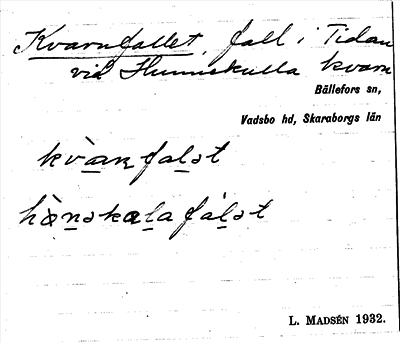 Kvarnfallet, fall i Tidan
vid Hunnekulla kvarn
Bällefors sn,
Vadsbo hd, Skaraborgs län
kvàɑṉ faḻət
hòṉəkaḻa fáḻət
L. MADSÉN 1932.